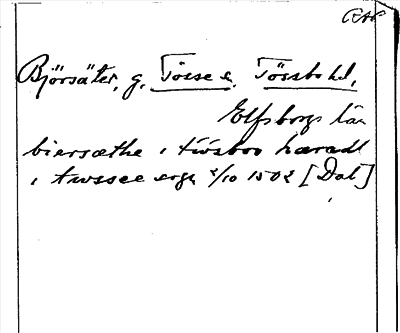 Björsäter, g. Tösse s. Tössbo hd,
Elfsborgs län
biersæthe i twsboo hæradt
i twssee sogn 2/10 1502 [Dal]